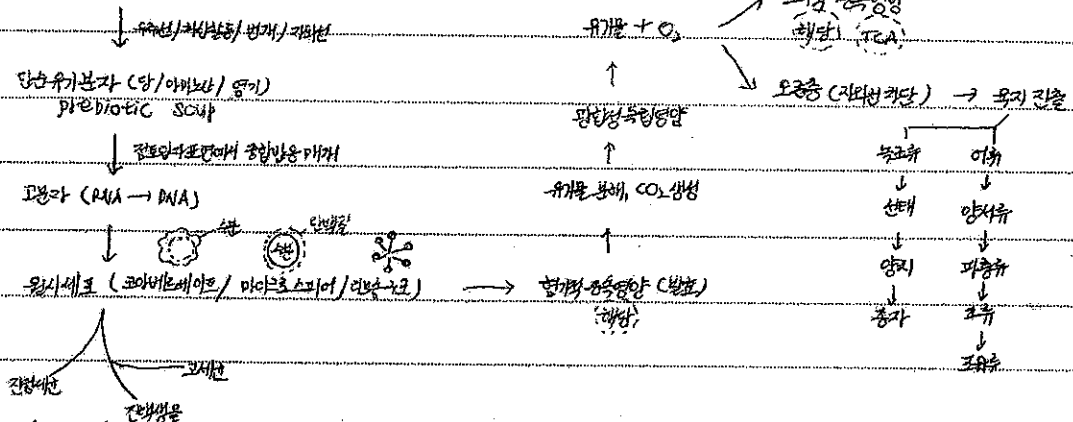 우주선/화산활동/번개/자외선
단순유기분자 (당/아미노산/염기)
prebiotic soup
점토입자표면에서 중합반응 매개
고분자 (RNA → DNA)
수분
수분
단백질
원시세포 (코아세르베이트/ 마이크로스피어/리포솜구조) → 혐기적 종속영양 (발효)
해당
진정세균
고세균
진핵생물
유기물 분해, CO₂ 생성
광합성 독립영양
유기물 + O₂
종속영양
해당
TCA
오존층 (자외선 차단) → 육지 진출
녹조류
선태
양치
종자
어류
양서류
파충류
조류
포유류